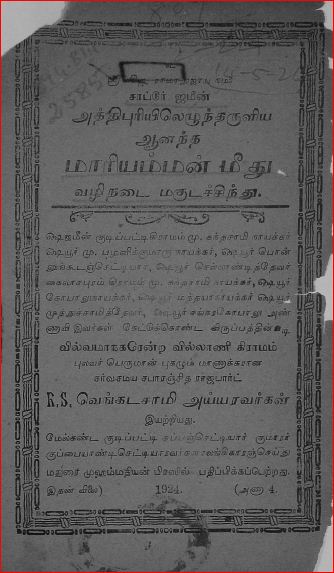 சாப்டூர் ஜமீன்
அத்திபுரியிலெழுந்தருளிய
ஆனந்த
மாரியம்மன் மீது
வழிநடை மகுடச்சிந்து.
ஷெஜமீன் குடிப்பட்டி கிராமம் மு. கந்தசாமி நாயக்கர்
ஷெயூர் மு. பழனிக்குமாரு நாயக்கர், ஷெயூர் பொன்
ஷெயூர்
கைலாசபுரம் மு. கந்தசாமி நாயக்கர், ஷெயூர்
கோபாலுநாயக்கர், ஷெயூர் ஷெயூர்
முத்துசாமித்தேவர், ஷெயூர் சங்கரகோபாலு அண்
ணாவி இவர்கள் கேட்டுக்கொண்ட விருப்பத்தின்படி
வில்வமாநகரென்ற வில்லாணி கிராமம்
புலவர் பெருமான் புகழும் மாணாக்கரான
சர்வசமய சபாரஞ்சித ராஜபார்ட்
R.S, வெங்கடசாமி அய்யரவர்கள்
இயற்றியது.
மேல்கண்ட குடிப்பட்டி சுப்பஞ்செட்டியார் குமாரர்
குப்பையாண்டி செட்டியாரவர்களால்
மதுரை பிரஸில் பதிப்பிக்கப்பெற்றது.
இதன் விலை] 1924. (அணா 4.